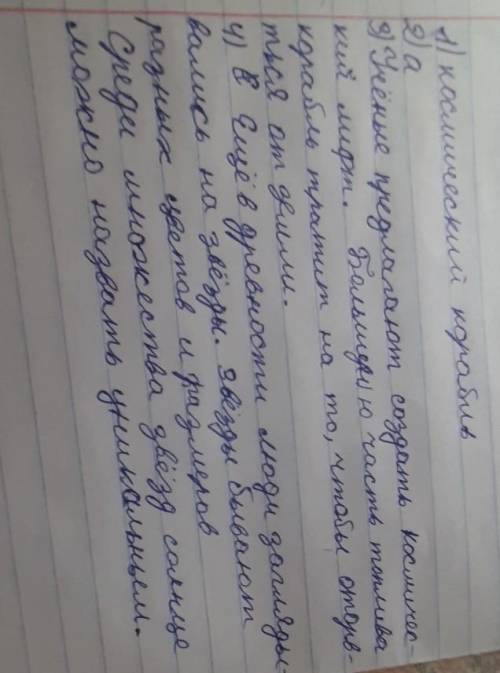 1) космический корабль
2) а
3) Учёные предлагают создать космичес-
кий лифт. Большую часть топлива
корабль тратит на то, чтобы оторв-
ться от земли.
4) В Ещё в древности люди загляды-
вались на звёзды. звёзды бывают
разных цветов и размеров
Среди множества звёзд солнце
можно назвать уникальным.